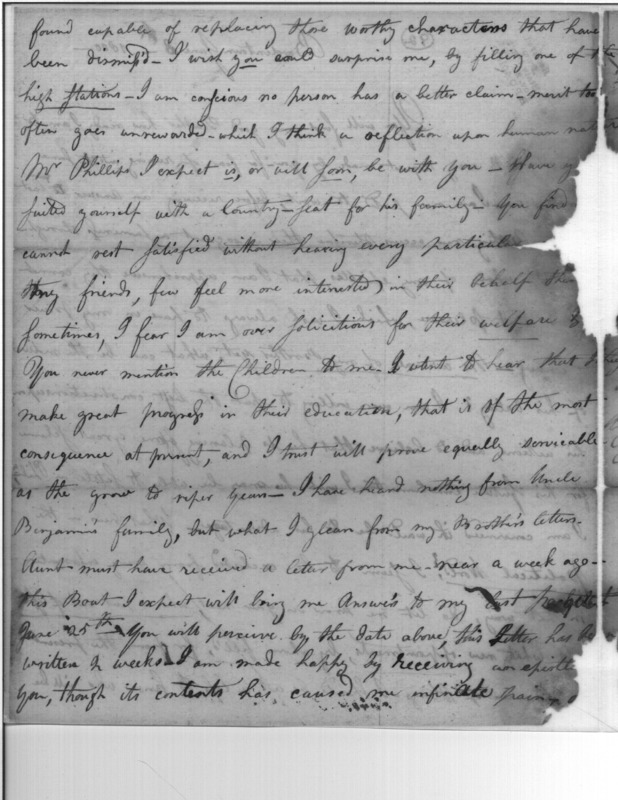 found capable of replacing those worthy characters that have
been dismiss'd - I wish you could surprise me, by filling one of the
high stations - I am conscious no person has a better claim - merit too
often goes unrewarded - which I think a reflection upon human nat
Mr Phillips I expect is, or will soon, be with you - Have y
suited yourself with a Country-seat for his family - You find
cannot rest satisfied without hearing every particula
my friends, few feel more interested in their behalf th
sometimes, I fear I am over solicitious for their welfare
You never mention the Children to me - I want to hear that they
make great progress in their education, that is of the most
consequence at present, and I trust will prove equally servicable
as the grow to riper years - I have heard nothing from Uncle
Benjamin's family, but what I glean from my Brother's letters.
Aunt must have received a letter from me - near a week ago -
this Boat I expect will bring me Answers to my last
June 25th You will perceive by the date above, this letter has be
written 2 weeks - I am made happy by receiving an epistle
you, though its contents has caused me infinate pain,